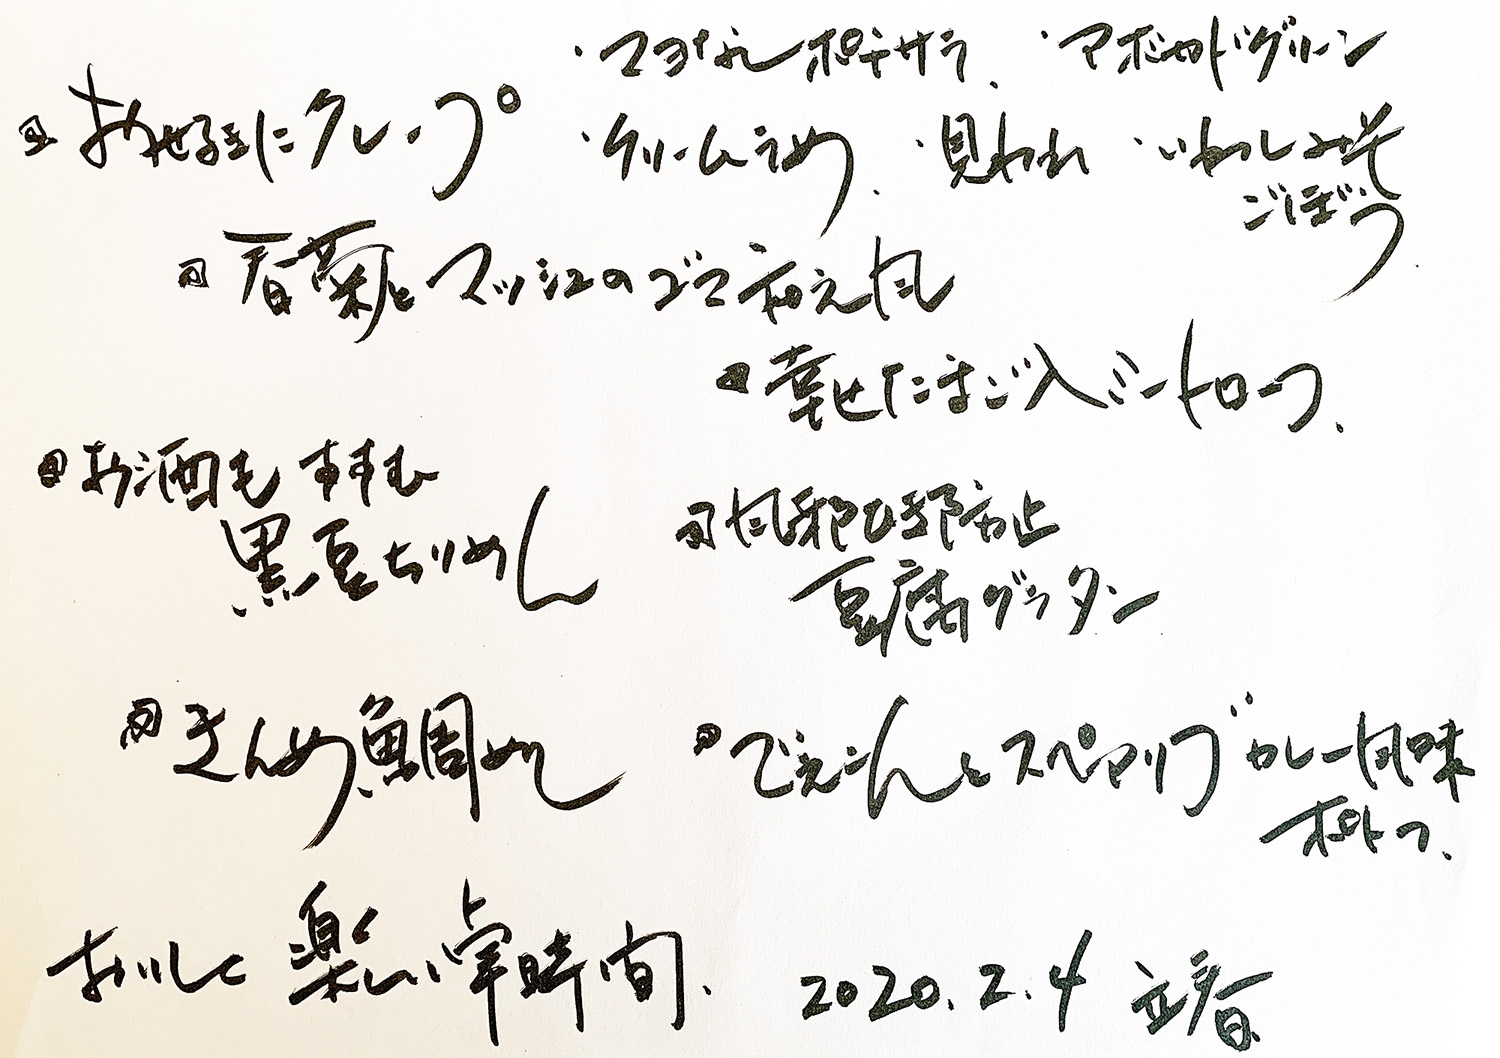 ・マヨなしポテサラ ・アボカドグリーン
おせるきにクレープ ・クリームうめ ・見われ ・いわしみそ
ごぼう
春菊とマッシュのゴマ和え風
幸せたまご入ミートローフ
お酒もすすむ
黒豆ちりめん
風邪ひき予防止
豆腐グラタン
きんめ鯛めし
れんこんとスペアリブ カレー風味
ポトフ
おいしく 楽しい 幸時間
2020.2.4 立春